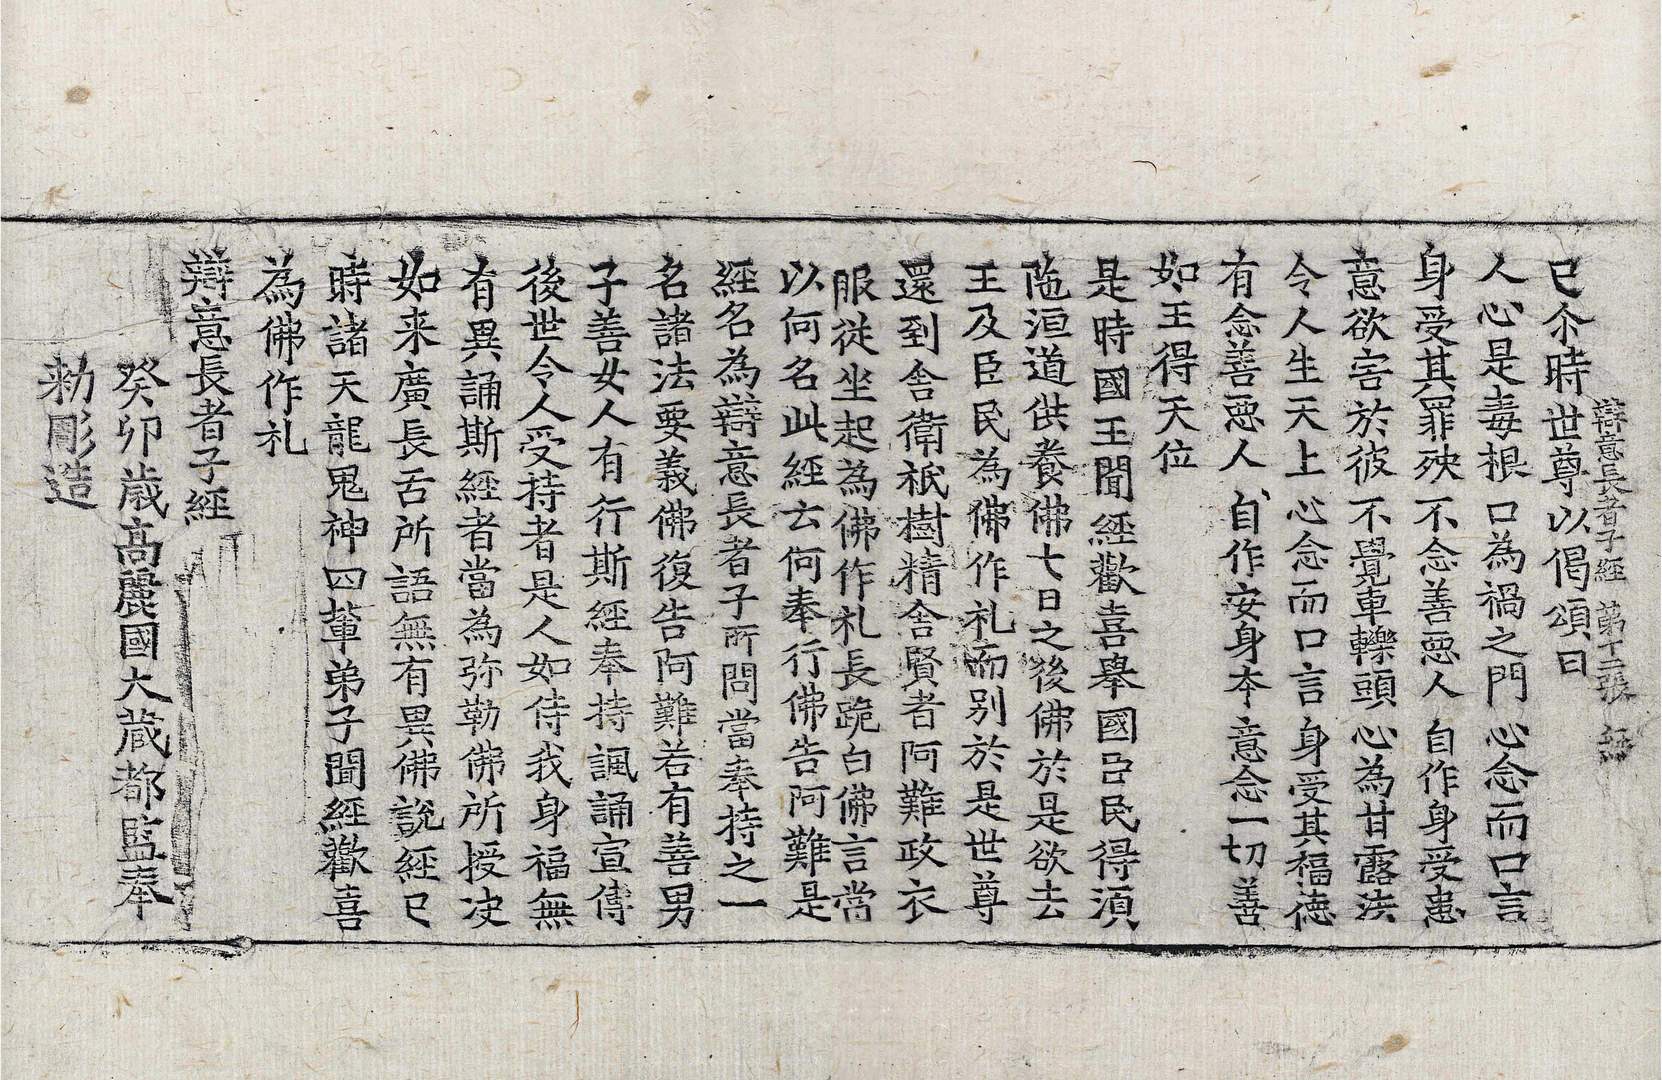 辯意長者子經 第十二張 經
已尒時世尊以偈頌曰
人心是毒根 口為禍之門 心念而口言
身受其罪殃 不念善惡人 自作身受患
意欲害於彼 不覺車轢頭 心為甘露法
令人生天上 心念而口言 身受其福德
有念善惡人 自作安身夲 意念一切善
如王得天位
是時國王聞經歡喜舉國臣民得湏
陁洹道供養佛七日之後佛於是欲去
王及臣民為佛作礼而別於是世尊
還到舍衛祇樹精舍賢者阿難政衣
服從坐起為佛作礼長跪白佛言當
以何名此經云何奉行佛告阿難是
經名為辯意長者子所問當奉持之一
名諸法要義佛復告阿難若有善男
子善女人有行斯經奉持諷誦宣傳
後世令人受持者是人如侍我身福無
有異誦斯經者當為弥勒佛所授决
如来廣長舌所語無有異佛說經已
時諸天龍鬼神四輩弟子聞經歡喜
為佛作礼
辯意長者子經
癸卯歲高麗國大藏都監奉
勑彫造